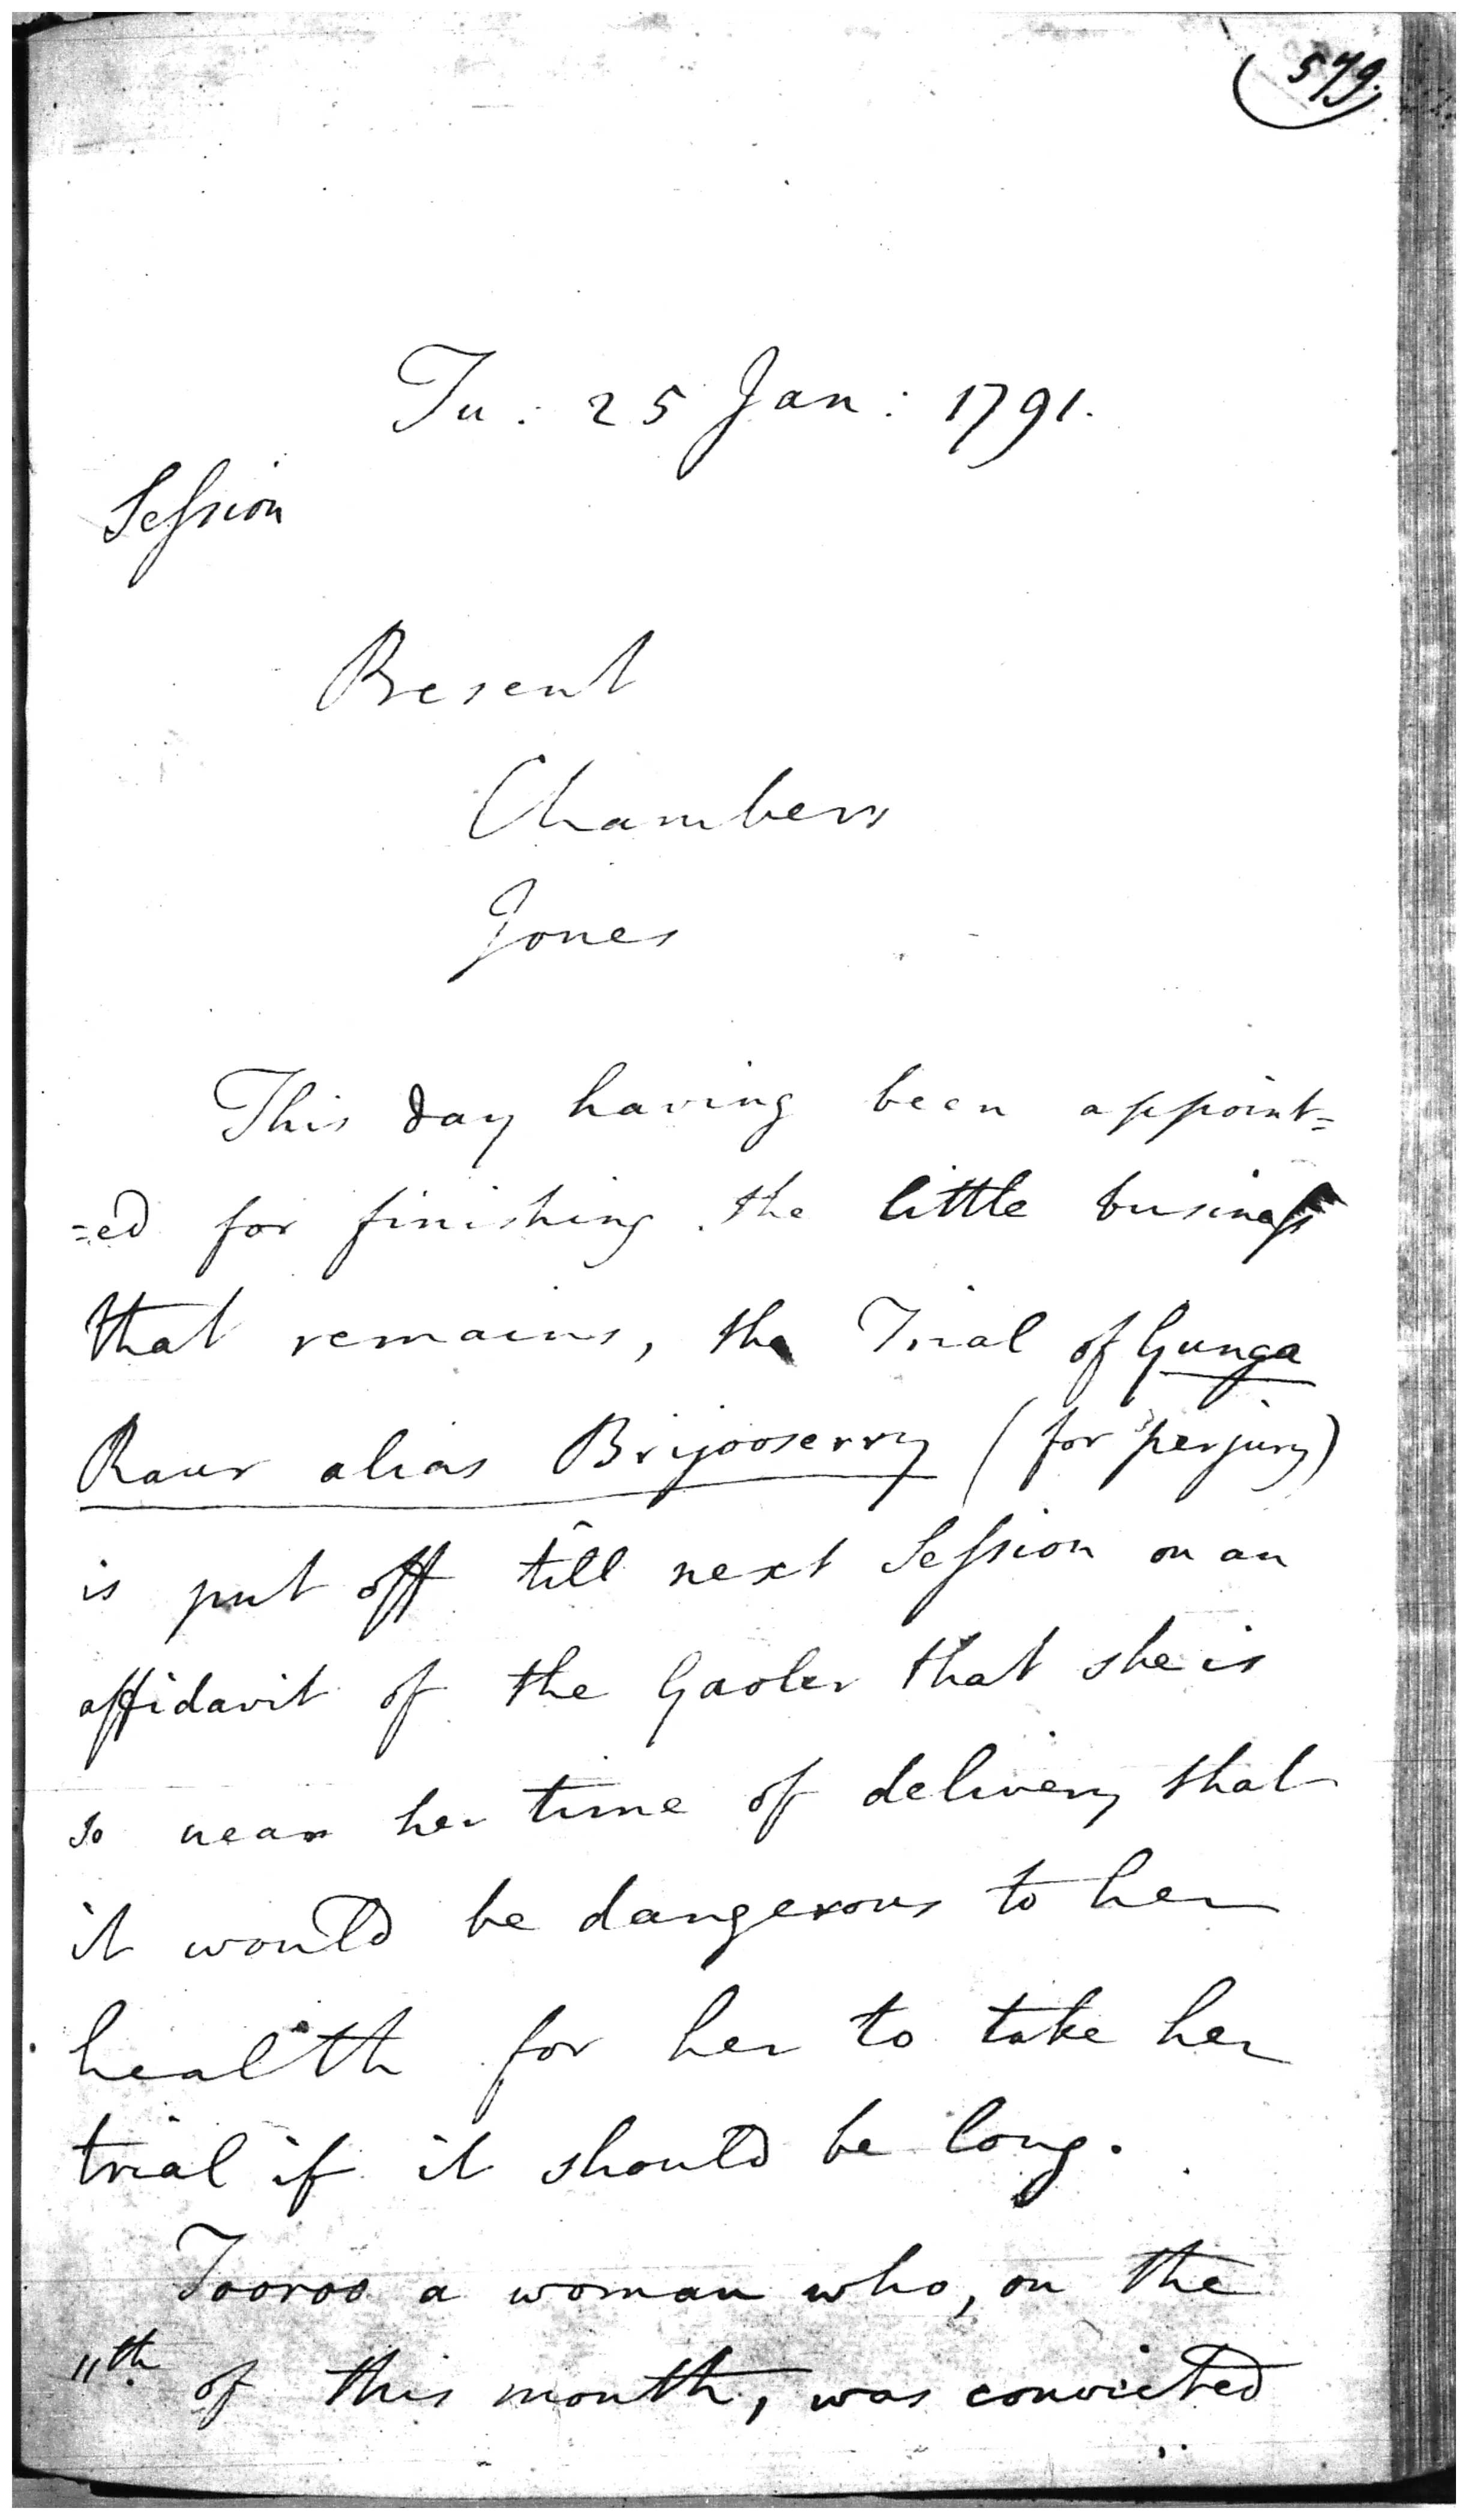 579.
Tu: 25 Jan: 1791.
Session
Present
Chambers
Jones
This day having been appoint=
=ed for finishing the little business
that remains, the Trial of Gunga
Raur alias Brijooserry (for perjury)
is put off till next Session on an
affidavit of the Gaoler that she is
so near her time of delivery that
it would be dangerous to her
health for her to take her
trial if it should be long.
Tooroo a woman who, on the
11th. of this month, was convicted